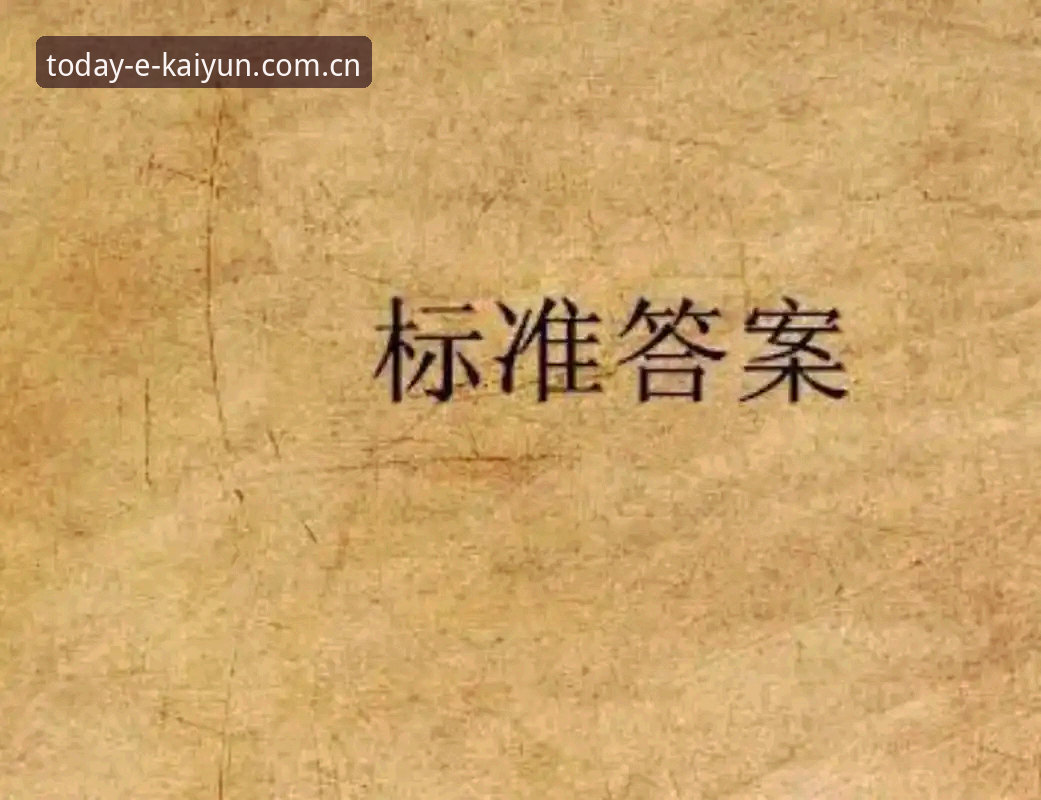 today-e-kaiyun.com.cn
标准答案